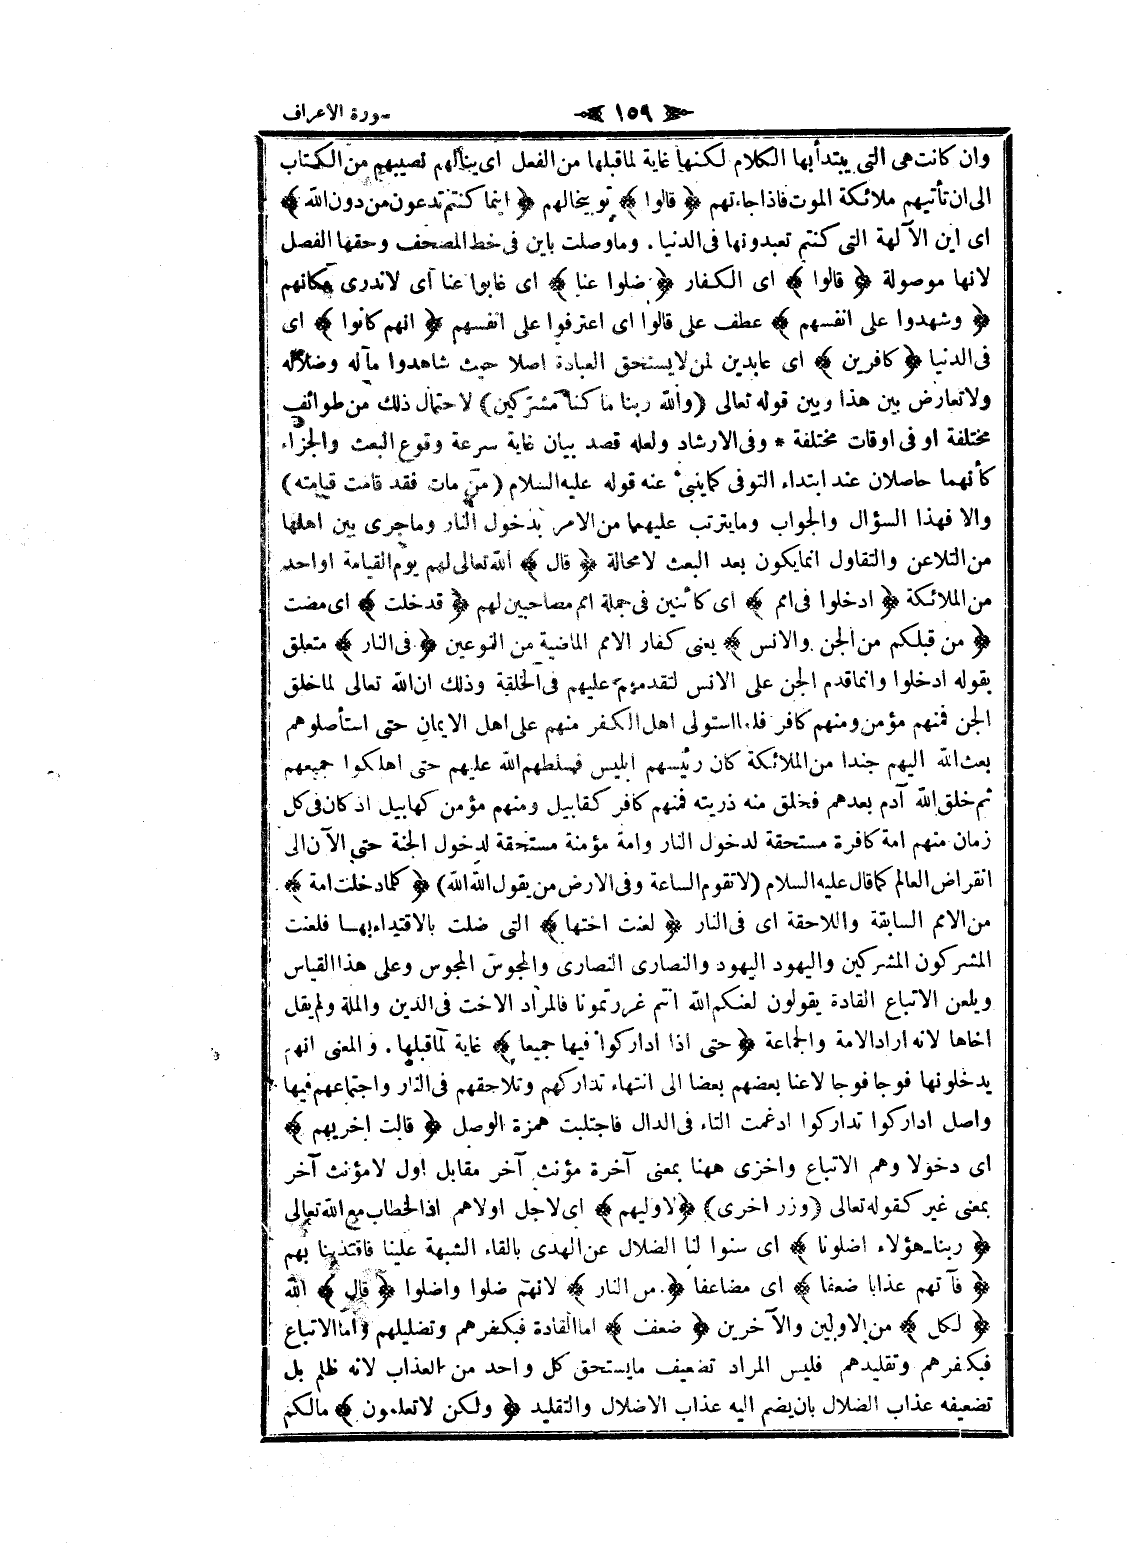 سورة الاعراف
١٥٩
وان كانت هى التى يبتدأ بها الكلام لكنها غاية لما قبلها من الفعل اى ينالهم نصيبهم من الكتاب
الى ان تأتيهم ملائكة الموت فاذا جاءتهم ﴿ قالوا ﴾ توبيخا لهم ﴿ اينما كنتم تدعون من دون الله ﴾
اى اين الآلهة التى كنتم تعبدونها فى الدنيا . وما وصلت باين فى خط المصحف وحقها الفصل
لانها موصولة ﴿ قالوا ﴾ اى الكفار ﴿ ضلوا عنا ﴾ اى غابوا عنا اى لاندرى مكانهم
﴿ وشهدوا على انفسهم ﴾ عطف على قالوا اى اعترفوا على انفسهم ﴿ انهم كانوا ﴾ اى
فى الدنيا ﴿ كافرين ﴾ اى عابدين لمن لايستحق العبادة اصلا حيث شاهدوا مآله وضلاله
ولا تعارض بين هذا وبين قوله تعالى (والله ربنا ما كنا مشركين) لاحتمال ذلك من طوائف
مختلفة او فى اوقات مختلفة * وفى الارشاد ولعله قصد بيان غاية سرعة وقوع البعث والجزاء
كأنهما حاصلان عند ابتداء التوفى كماينبئ عنه قوله عليه السلام (من مات فقد قامت قيامته)
والا فهذا السؤال والجواب ومايترتب عليهما من الامر بدخول النار وماجرى بين اهلها
من التلاعن والتقاول انمايكون بعد البعث لامحالة ﴿ قال ﴾ الله تعالى لهم يوم القيامة اواحد
من الملائكة ﴿ ادخلوا فى امم ﴾ اى كائنين فى جملة امم مصاحبين لهم ﴿ قدخلت ﴾ اى مضت
﴿ من قبلكم من الجن والانس ﴾ يعنى كفار الامم الماضية من النوعين ﴿ فى النار ﴾ متعلق
بقوله ادخلوا وانماقدم الجن على الانس لتقدمهم عليهم فى الخلقة وذلك ان الله تعالى لماخلق
الجن فمنهم مؤمن ومنهم كافر فلما استولى اهل الكفر منهم على اهل الايمان حتى استأصلوهم
بعث الله اليهم جندا من الملائكة كان رئيسهم ابليس فسلطهم الله عليهم حتى اهلكوا جميعهم
ثم خلق الله آدم بعدهم فخلق منه ذريته فمنهم كافر كقابيل ومنهم مؤمن كهابيل اذ كان فى كل
زمان منهم امة كافرة مستحقة لدخول النار وامة مؤمنة مستحقة لدخول الجنة حتى الآن الى
انقراض العالم كماقال عليه السلام (لاتقوم الساعة وفى الارض من يقول الله الله) ﴿ كلمادخلت امة ﴾
من الامم السابقة واللاحقة اى فى النار ﴿ لعنت اختها ﴾ التى ضلت بالاقتداء بها فلعنت
المشركون المشركين واليهود اليهود والنصارى النصارى والمجوس المجوس وعلى هذا القياس
ويلعن الاتباع القادة يقولون لعنكم الله انتم غررتمونا فالمراد الاخت فى الدين والملة ولم يقل
اخاها لانه اراد الامة والجماعة ﴿ حتى اذا اداركوا فيها جميعا ﴾ غاية لماقبلها . والمعنى انهم
يدخلونها فوجا فوجا لاعنا بعضهم بعضا الى انتهاء تداركهم وتلاحقهم فى النار واجتماعهم فيها
واصل اداركوا تداركوا ادغمت التاء فى الدال فاجتلبت همزة الوصل ﴿ قالت اخريهم ﴾
اى دخولا وهم الاتباع واخرى ههنا بمعنى آخرة مؤنث آخر مقابل اول لامؤنث آخر
بمعنى غير كقوله تعالى (وزر اخرى) ﴿ لاوليهم ﴾ اى لاجل اولاهم اذالخطاب مع الله تعالى
﴿ ربنا هؤلاء اضلونا ﴾ اى سنوا لنا الضلال عن الهدى بالقاء الشبهة علينا فاقتدينا بهم
﴿ فآتهم عذابا ضعفا ﴾ اى مضاعفا ﴿ من النار ﴾ لانهم ضلوا واضلوا ﴿ قال ﴾ الله
﴿ لكل ﴾ من الاولين والآخرين ﴿ ضعف ﴾ اما القادة فبكفرهم وتضليلهم واما الاتباع
فبكفرهم وتقليدهم فليس المراد تضعيف مايستحق كل واحد من العذاب لانه ظلم بل
تضعيفه عذاب الضلال بان يضم اليه عذاب الاضلال والتقليد ﴿ ولكن لاتعلمون ﴾ مالكم